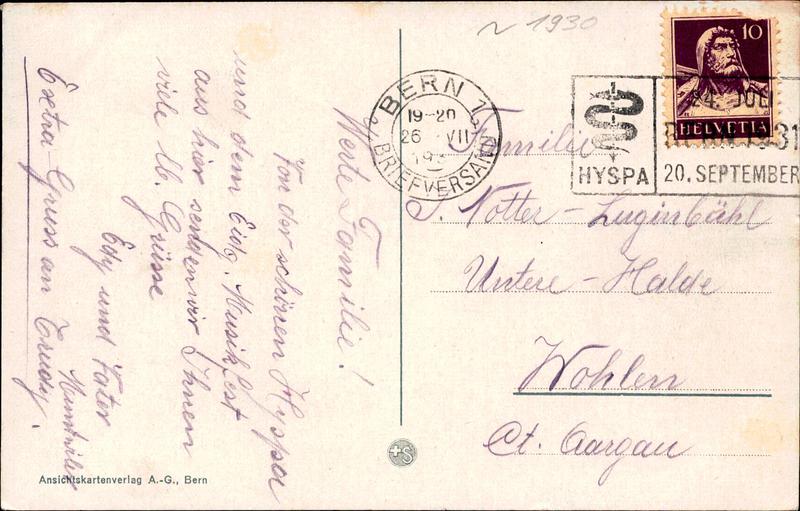 ~ 1930
Werte Familie!
Von der schönen Hyspa
und dem Eidg. Musikfest
aus hier senden wir Ihnen
viele lb. Grüsse
Edy und Vater
Extra-Gruss an Trudy.
Ansichtskartenverlag A.-G., Bern
BERN 1
19-20
26. VII
193
BRIEFVERSAND
HYSPA
24. JULI
BERN 1931
20. SEPTEMBER
10
HELVETIA
Familie
J. Notter-Luginbühl
Untere-Halde
Wohlen
Ct. Aargau
+S